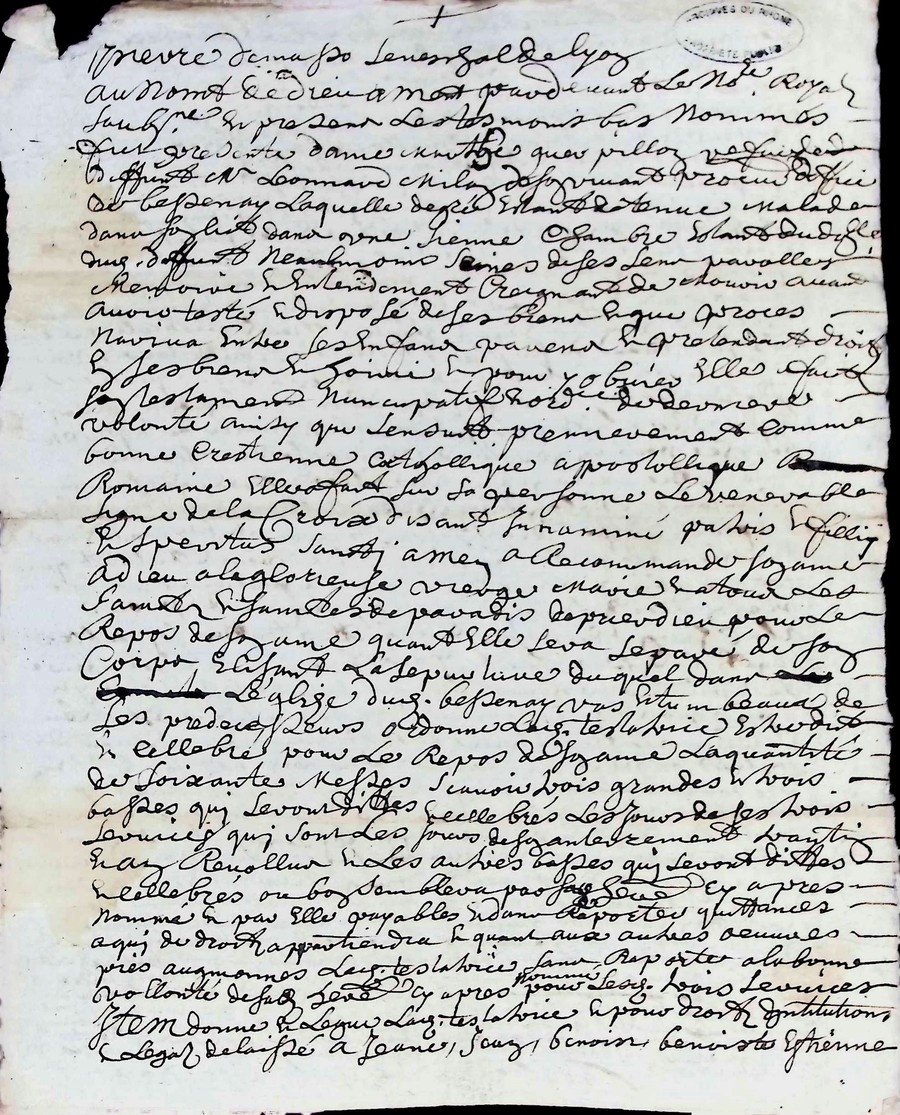 ARCHIVES DU RHONE
PROPRIETE PUBLIQUE
de lyon
Au Nom de dieu amen par devant Le No.re Royal
soubz.ne En presence Les tesmoins bas Nommes
fut presente dame
deffunt Mr Leonnard Milan de son vivant
de bessenay Laquelle de gré Estant detenue Malade
dans son lit dans une sienne Chambre
dud. deffunt Neaulmoins saines de ses sens parolles
Memoire Et Entendement Craignant de Mourir avant
avoir testé Et disposé de ses biens Et que proces
Naviva Entre ses Enfans parens Et pretendant droit
En ses biens Et pour y obvier Elle a fait
son testament Nuncupatif Et ord. de derniere
volonté ainsy que sensuit premierement Comme
bonne Crestienne Cathollique appostollique
Romaine Elle a fait sur sa personne Le venerable
signe de la Croix disant In nomine patris Et fillij
Et speritus santj amen a Recommande son ame
a dieu a la glorieuse vierge Marie Et a tous Les
saints Et saintes de paradis de prier dieu pour Le
Repos de son ame quant Elle sera separé de son
Corps Elisant La sepulture duquel dans
Leglize dud. bessenay Et tumbeaux de
ses predecesseurs ordonne Lad. testatrice Estre dit
Et Cellebré pour Le Repos de son ame La quantité
de soixante Messes scavoir trois grandes Et trois
basses quj seront dittes Et cellebrés Les Jours de ses trois
services quj sont Les Jours de son enterrement
En an Revollus Et Les autres basses quj seront dittes
Et cellebrés ou bon semblera par Cy apres
Nommé Et par Elle payables Et dans Raporter quittances
a quj de droit appartiendra Et quant aux autres oeuvres
pies augmonnes Lad. testatrice sans Raporte a la bonne
vollonté de Cy apres nommé pour Lesd. trois services
Item donne Et Legue Lad. testatrice Et pour droit dinstitution
Et Legat delaissé a Jeane, Jean, benoist, benoiste Estienne